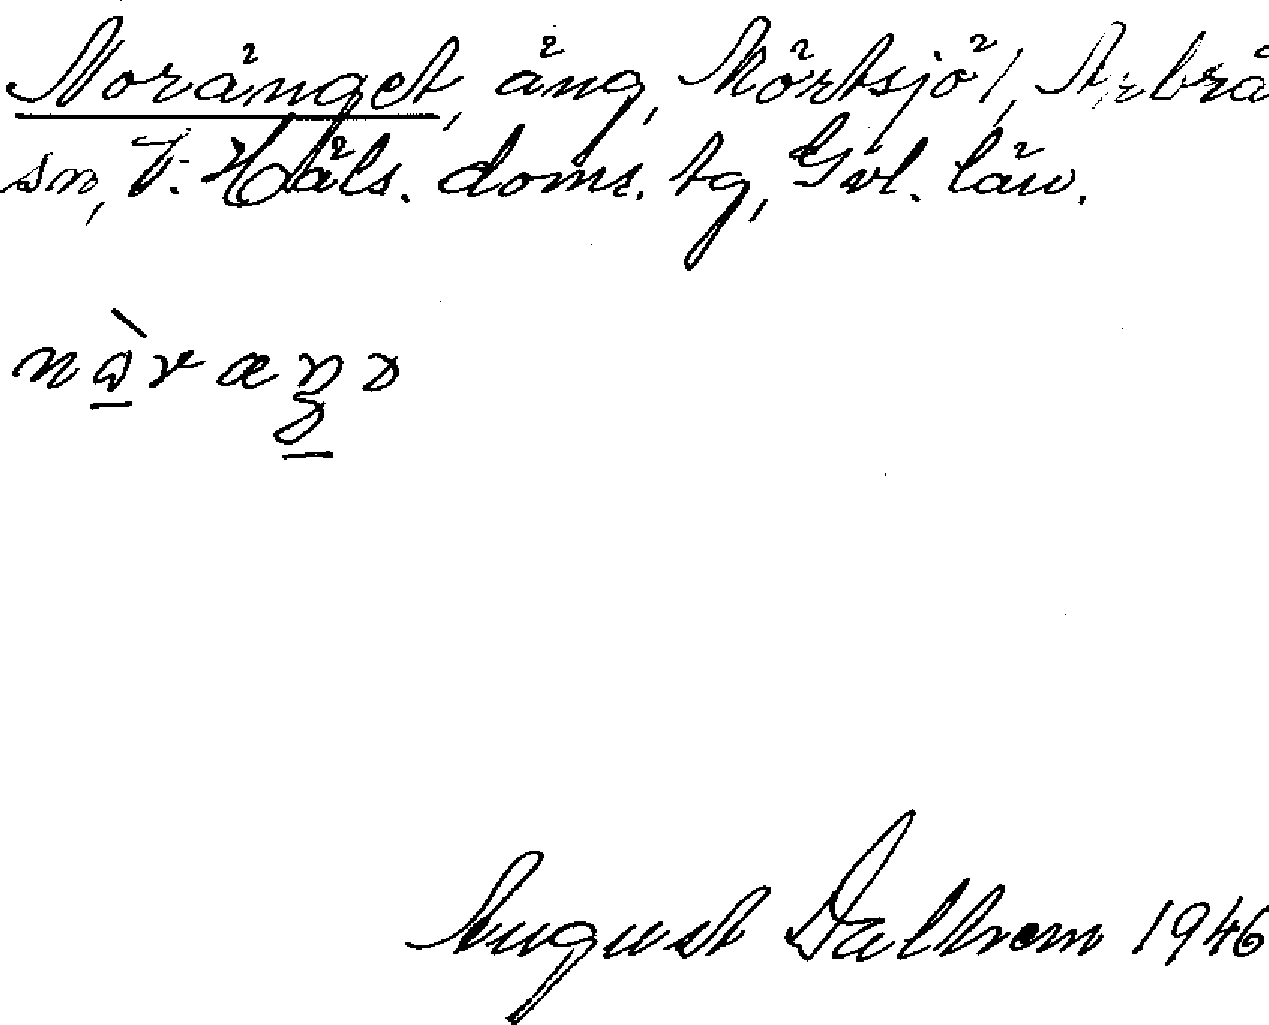 Noränget, äng, Mörtsjö 1, Arbrå
sn, V. Häls. doms. tg, Gvl. län.
August Dalhem 1946